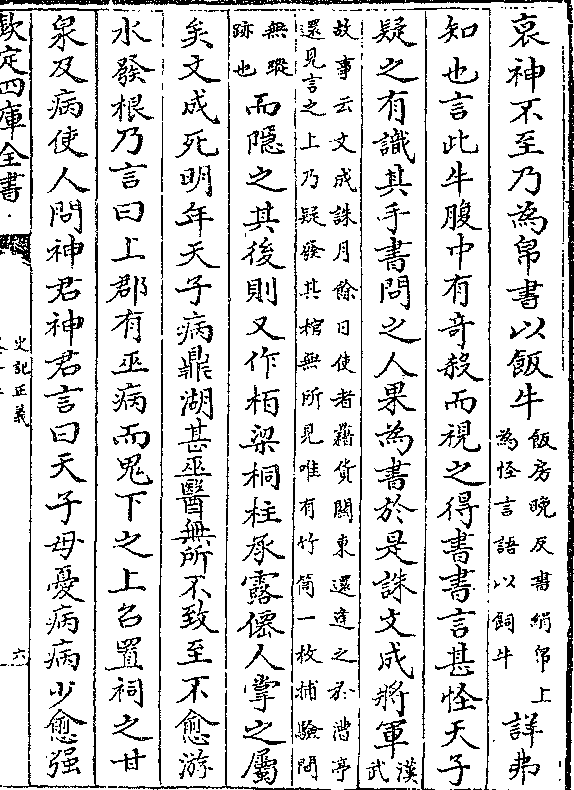 衰神不至乃為帛書以飯牛飯房晚反書絹帛上為怪言語以飼牛詳弗
知也言此牛腹中有奇殺而視之得書書言甚怪天子
疑之有識其手書問之人果為書於是誅文成將軍漢武
故事云文成誅月餘日使者藉貨關東還逢之於漕亭還見言之上乃疑發其棺無所見唯有竹筒一枚捕驗間
無蹤跡也而隱之其後則又作栢梁桐柱承露僊人掌之屬
矣文成死明年天子病鼎湖甚巫醫無所不致至不愈游
水發根乃言曰上郡有巫病而鬼下之上召置祠之甘
泉及病使人問神君神君言曰天子毋憂病病少愈强
欽定四庫全書
史記正義
六